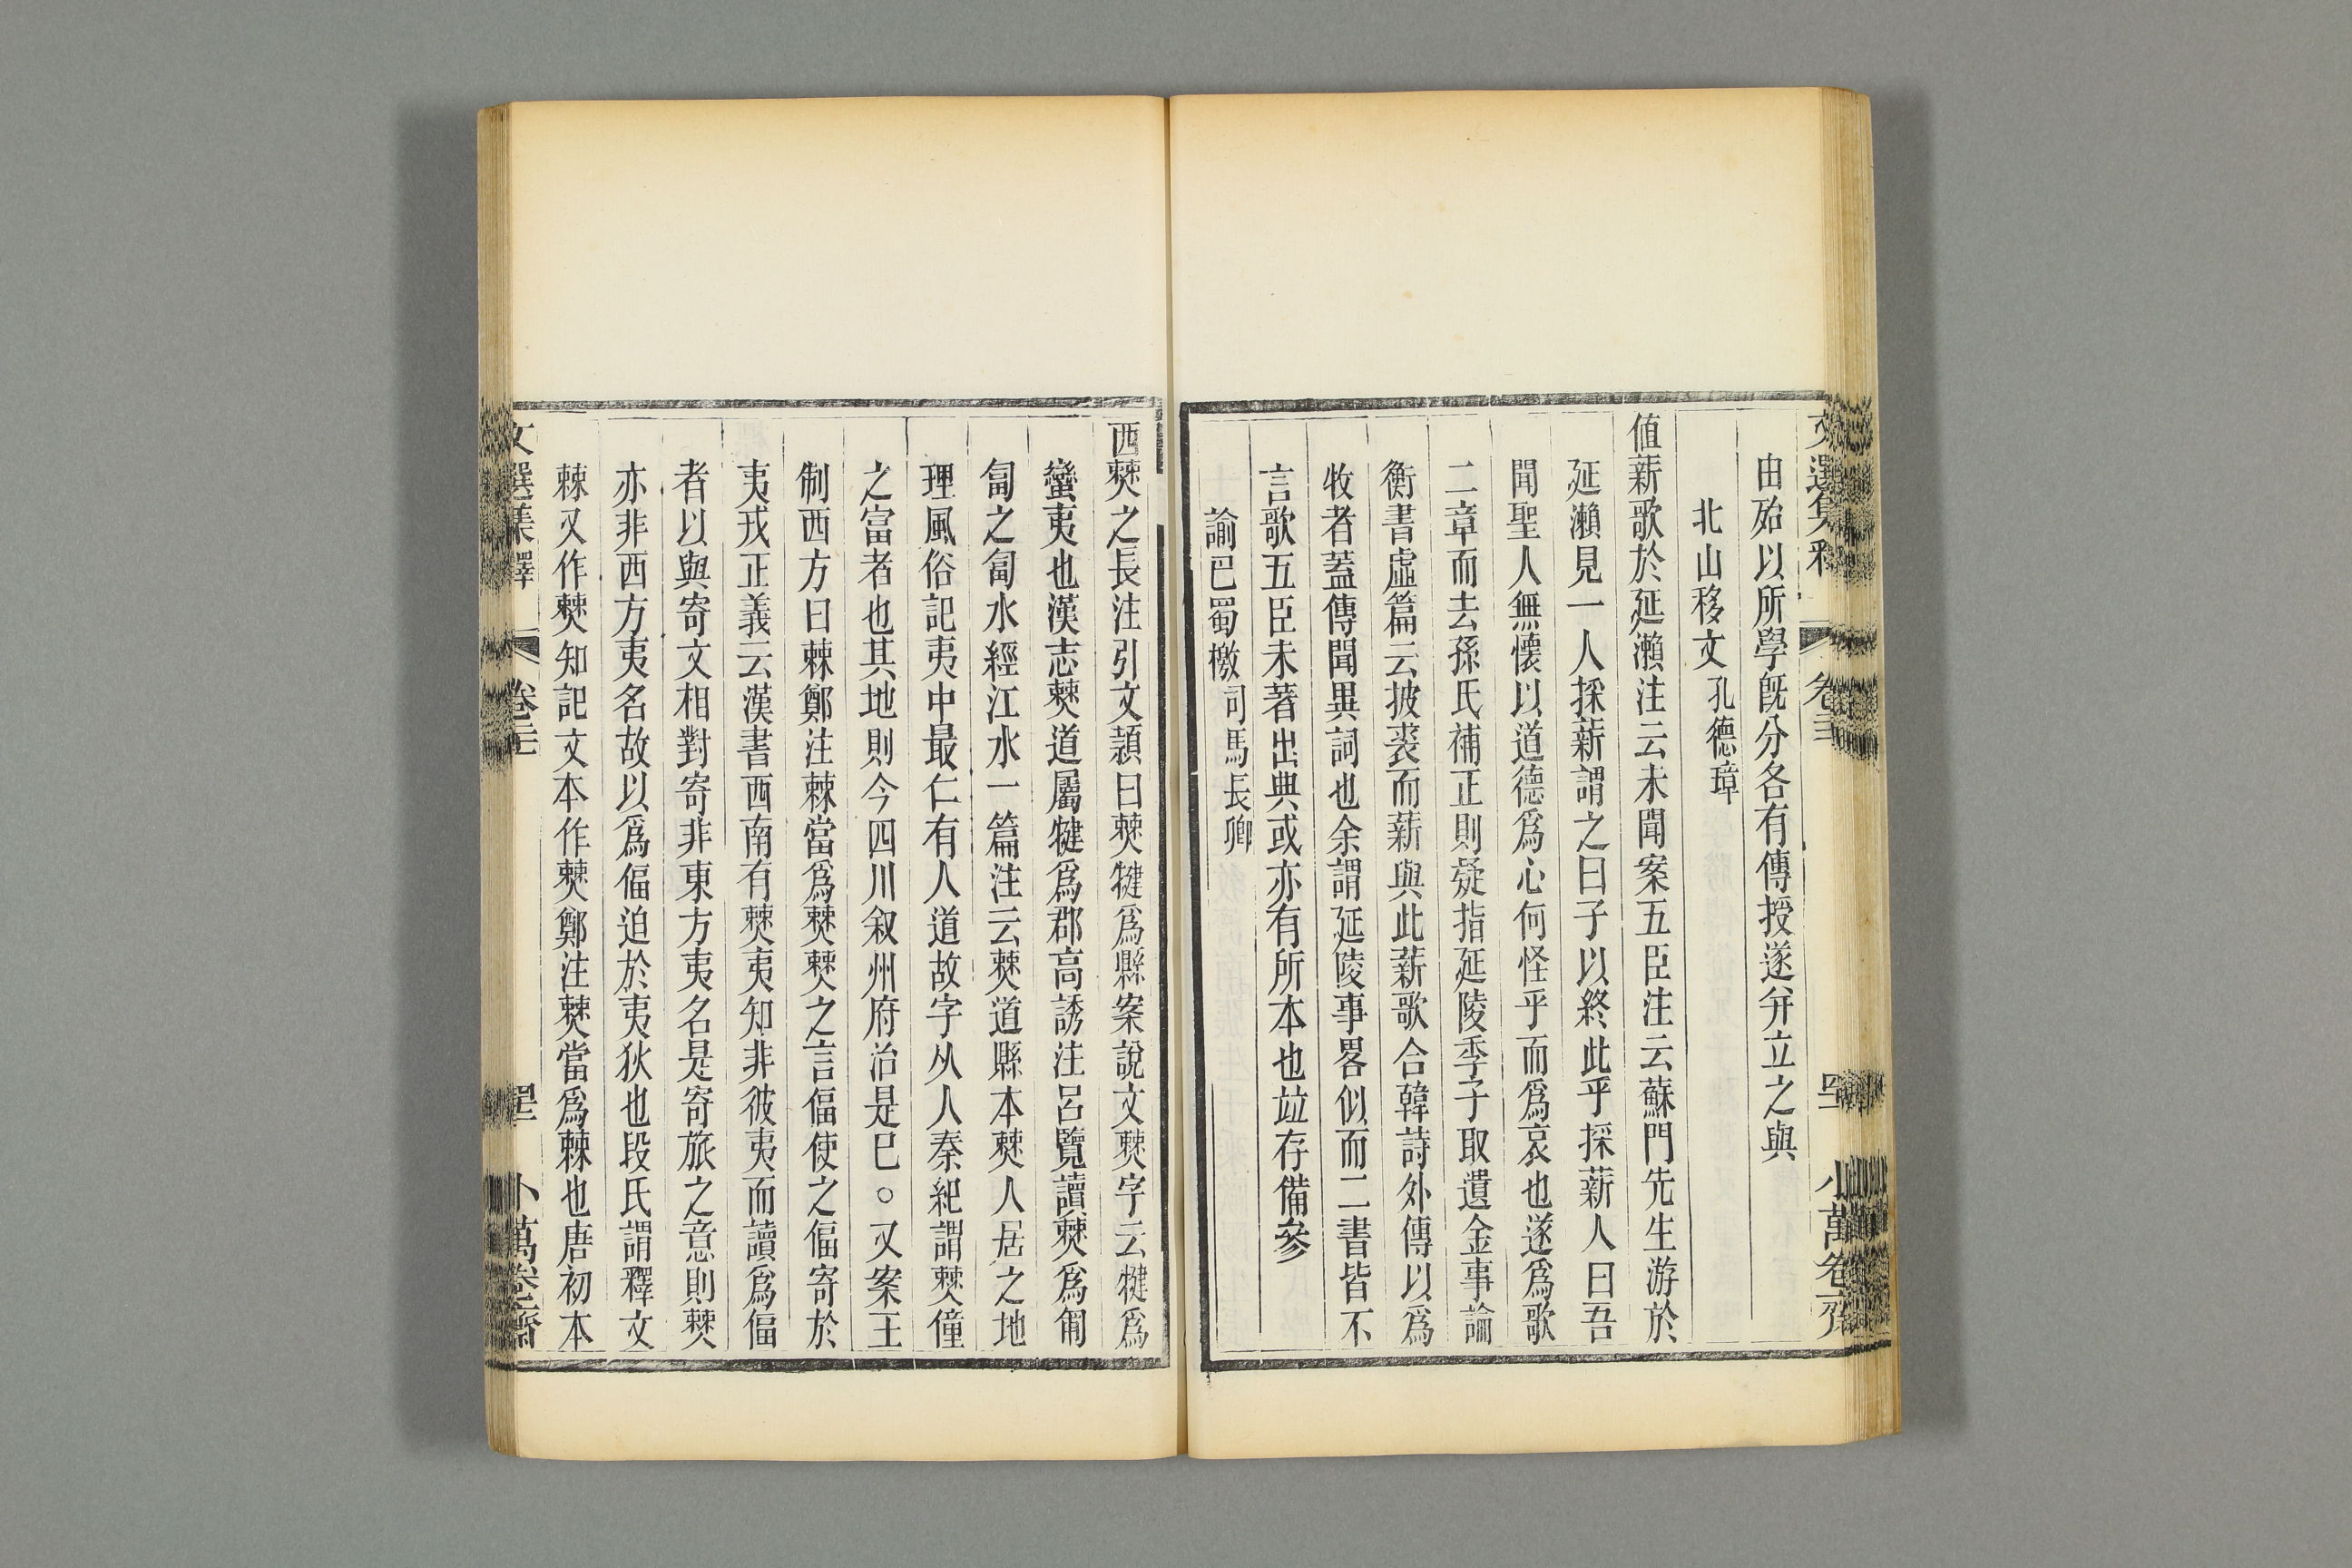 由殆以所學旣分各有傳授遂幷立之與
北山移文 孔德璋
値薪歌於延瀨注云未聞案五臣注云蘇門先生游於
延瀨見一人採薪謂之曰子以終此乎採薪人曰吾
聞聖人無懷以道德爲心何怪乎而爲哀也遂爲歌
二章而去孫氏補正則疑指延陵季子取遺金事論
衡書虛篇云披裘而薪與此薪歌合韓詩外傳以爲
牧者蓋傳聞異詞也余謂延陵事畧似而二書皆不
言歌五臣未著出典或亦有所本也竝存備參
諭巴蜀檄 司馬長卿
西僰之長注引文穎曰僰犍爲縣案說文僰字云犍爲
蠻夷也漢志僰道屬犍爲郡高誘注呂覽讀僰爲匍
匐之匐水經江水一篇注云僰道縣本僰人居之地
理風俗記夷中最仁有人道故字从人秦紀謂僰僮
之富者也其地則今四川叙州府治是巳○又案王
制西方曰棘鄭注棘當爲僰僰之言偪使之偪寄於
夷戎正義云漢書西南有僰夷知非彼夷而讀爲偪
者以與寄文相對寄非東方夷名是寄旅之意則僰
亦非西方夷名故以爲偪迫於夷狄也段氏謂釋文
棘又作僰知記文本作僰鄭注僰當爲棘也唐初本
文選集釋 卷二十 小萬卷齋